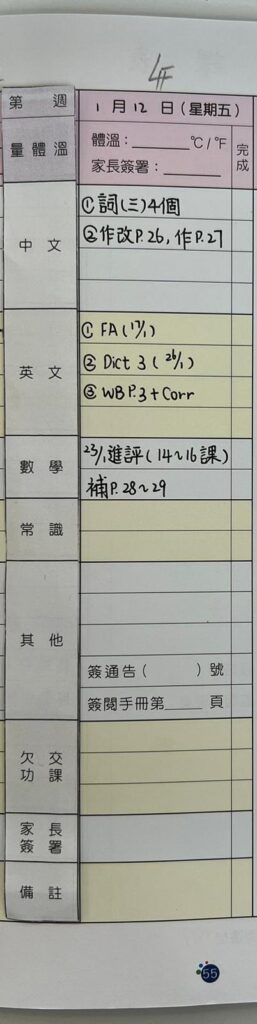 4F
第 週
1 月 12 日 (星期五)
量體溫
體溫：______ °C / °F
家長簽署：______
完成
中 文
① 詞(三)4個
② 作改P.26, 作P.27
英 文
① FA (17/1)
② Dict 3 (26/1)
③ WB P.3 + Corr
數 學
23/1 進評(14~16課)
補P.28~29
常 識
其 他
簽通告( )號
簽閱手冊第____頁
欠 交
功 課
家 長
簽 署
備 註
55